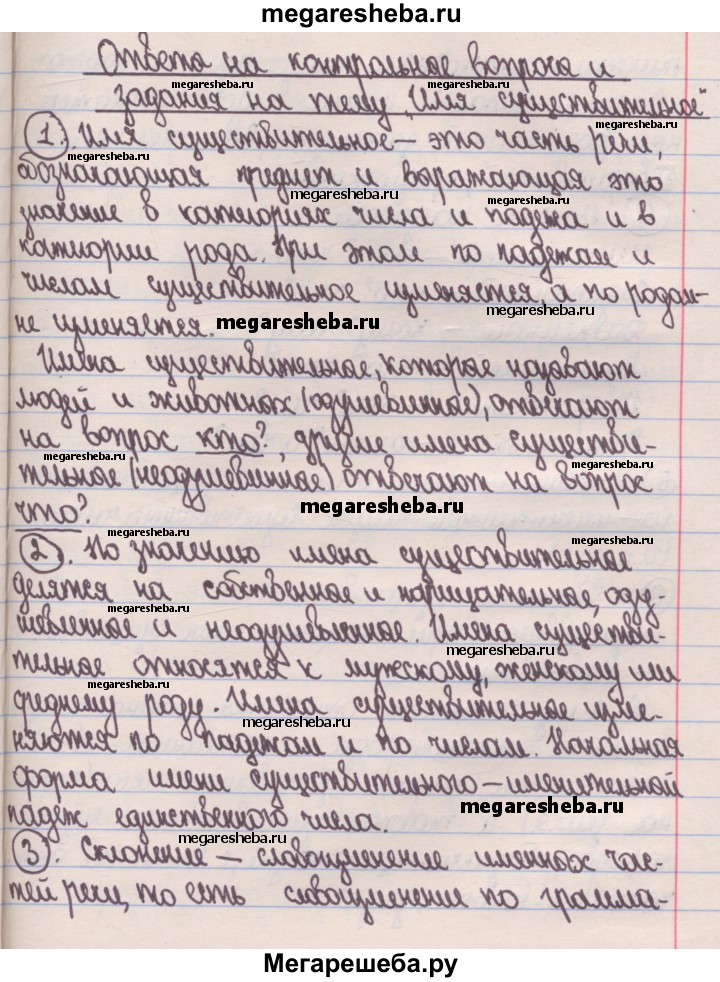 megaresheba.ru
Ответы на контрольные вопросы и
megaresheba.ru
megaresheba.ru
задания на тему „Имя существительное"
megaresheba.ru
1. Имя существительное – это часть речи,
megaresheba.ru
обозначающая предмет и выражающая это
megaresheba.ru
megaresheba.ru
значение в категориях числа и падежа и в
категории рода. При этом по падежам и
megaresheba.ru
числам существительное изменяется, а по родам –
megaresheba.ru
не изменяется. megaresheba.ru
Имена существительные, которые называют
людей и животных (одушевленные), отвечают
на вопрос кто?, другие имена существи-
megaresheba.ru
megaresheba.ru
тельные (неодушевленные) отвечают на вопрос
что? megaresheba.ru
megaresheba.ru
megaresheba.ru
2. По значению имена существительные
делятся на собственные и нарицательные, оду-
megaresheba.ru
шевленные и неодушевленные. Имена существи-
megaresheba.ru
тельные относятся к мужскому, женскому или
megaresheba.ru
среднему роду. Имена существительные изме-
megaresheba.ru
няются по падежам и по числам. Начальная
форма имени существительного – именительный
megaresheba.ru
падеж единственного числа.
megaresheba.ru
3. Склонение – словоизменение именных час-
megaresheba.ru
тей речи, то есть словоизменение по грамма-
Мегарешеба.ру